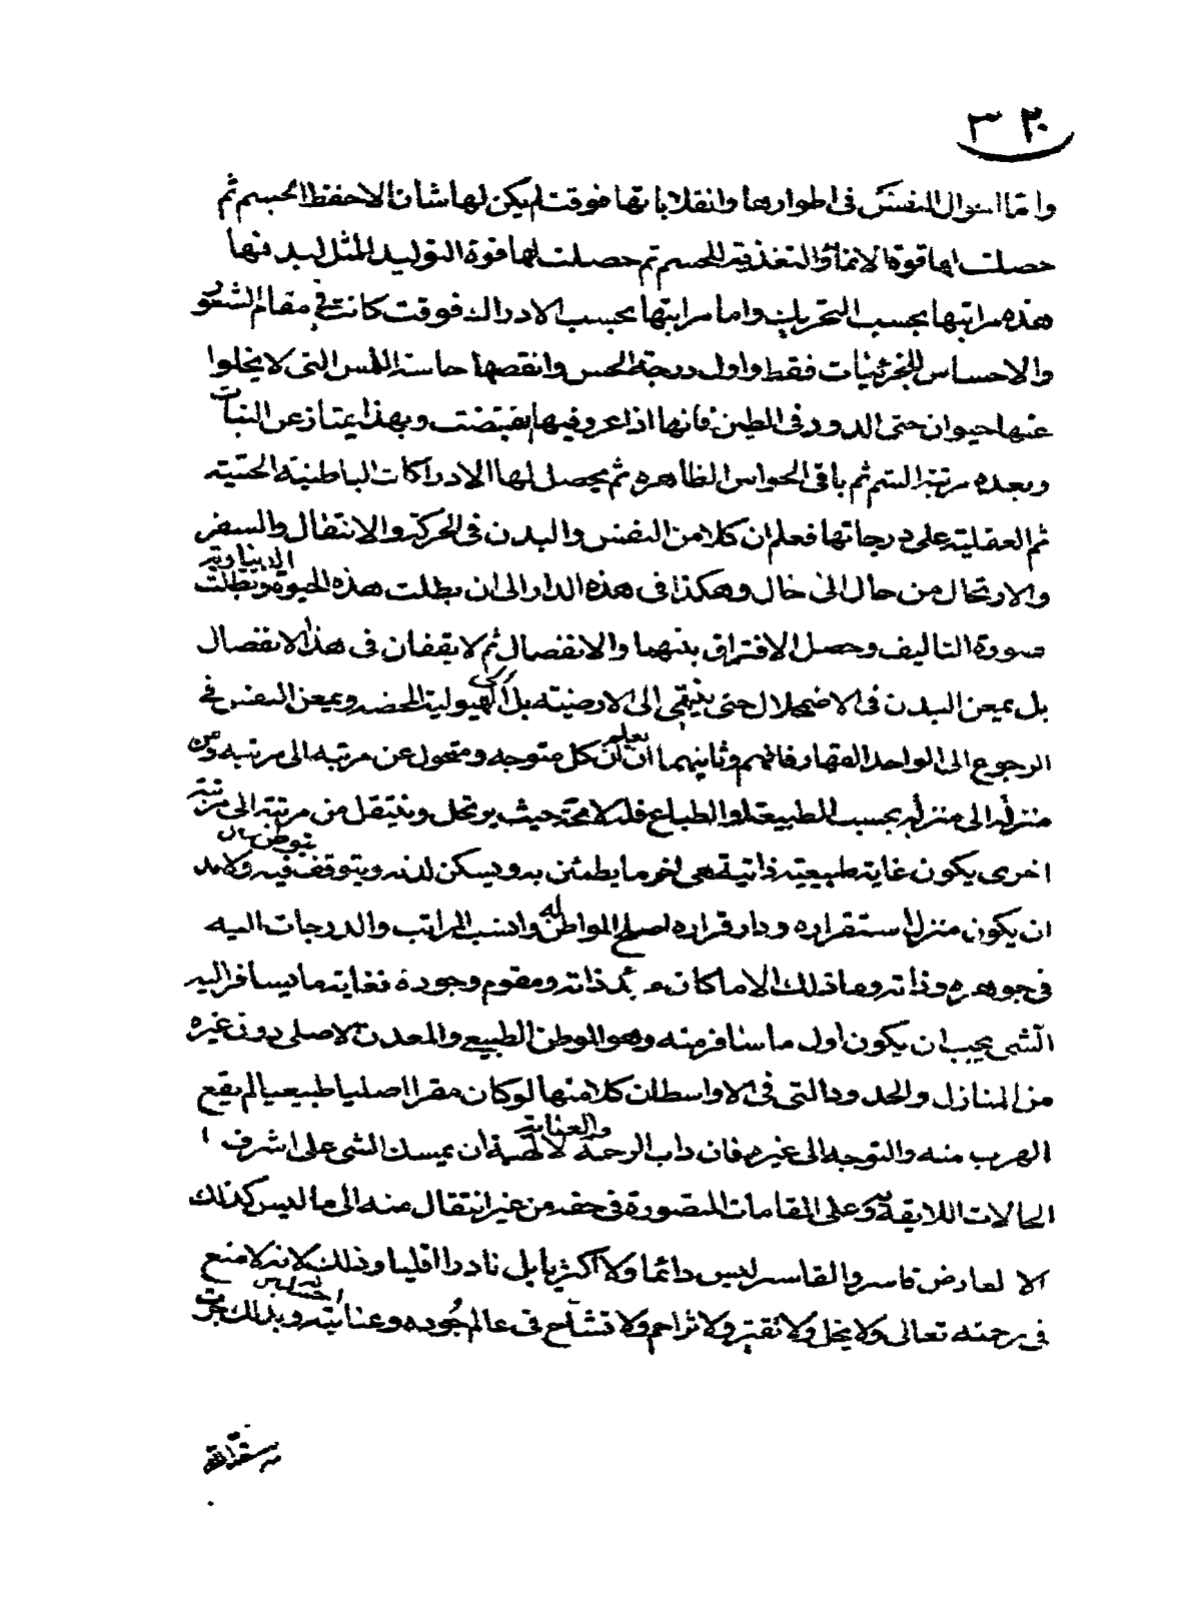 ٣٢٠
واما احوال النفس فى اطوارها وانقلاباتها فوقت لم يكن لها شان الا حفظ الجسم ثم
حصلت لها قوة الانماء والتغذية للجسم ثم حصلت لها قوة التوليد المثل لبدنها
هذه مراتبها بحسب التحريك واما مراتبها بحسب الادراك فوقت كانت فى مقام الشعور
والاحساس للجزئيات فقط واول درجة الحس وانقصها حاسة اللمس التى لا يخلوا
عنها حيوان حتى الدود فى الطين فانها اذا غرز فيها يقتضت وبهذا يمتاز عن النبات
وبعده مرتبة الشم ثم باقى الحواس الظاهره ثم يحصل لها الادراكات الباطنية الحسية
ثم العقلية على درجاتها فعلم ان كلا من النفس والبدن فى الحركة والانتقال والسفر
والارتحال من حال الى حال وهكذا فى هذه الدار الى ان بطلت هذه الحيوة الدنياوية وبطلت
صورة التاليف وحصل الافتراق بينهما والانفصال ثم لا يقفان فى هذا الانفصال
بل يمعن البدن فى الاضمحلال حتى ينتهى الى الارضية بل الى الهيولية المحضه ويمعن النفس فى
الرجوع الى الواحد القهار فافهم وثانيهما ان يعلم ان كل متوجه ومتحول عن مرتبه الى مرتبه ومن
منزله الى منزله بحسب الطبيعة او الطباع فله لا محة حيث يرتحل وينتقل من مرتبة الى مرتبة
اخرى يكون غاية طبيعية ذاتية هى اخر ما يطمئن به ويسكن لدنه ويتوقف فيه ولابد
ان يكون منزل استقراره ودار قراره اصلح المواطن له وانسب المراتب والدرجات اليه
فى جوهره وذاته وما ذلك الا ما كان مبدء ذاته ومقوم وجوده فغاية ما يسافر اليه
الشى يجب ان يكون اول ما سافر منه وهو الموطن الطبيعى والمعدن الاصلى دون غيره
من المنازل والحدود التى فى الاواسط لان كلا منها لو كان مقرا اصليا طبيعيا لم يقع
الهرب منه والتوجه الى غيره فان داب الرحمة الالهية والعناية ان يمسك الشى على اشرف
الحالات اللايقة به وعلى المقامات المتصورة فى حقه من غير انتقال منه الى ما ليس كذلك
الا لعارض قاسر والقاسر ليس دائما ولا اكثريا بل نادرا اقليا وذلك لانه لا منع
فى رحمته تعالى ولا بخل ولا تقتير ولا تزاحم ولا تشاح فى عالم جوده وعنايته وبذلك جرت